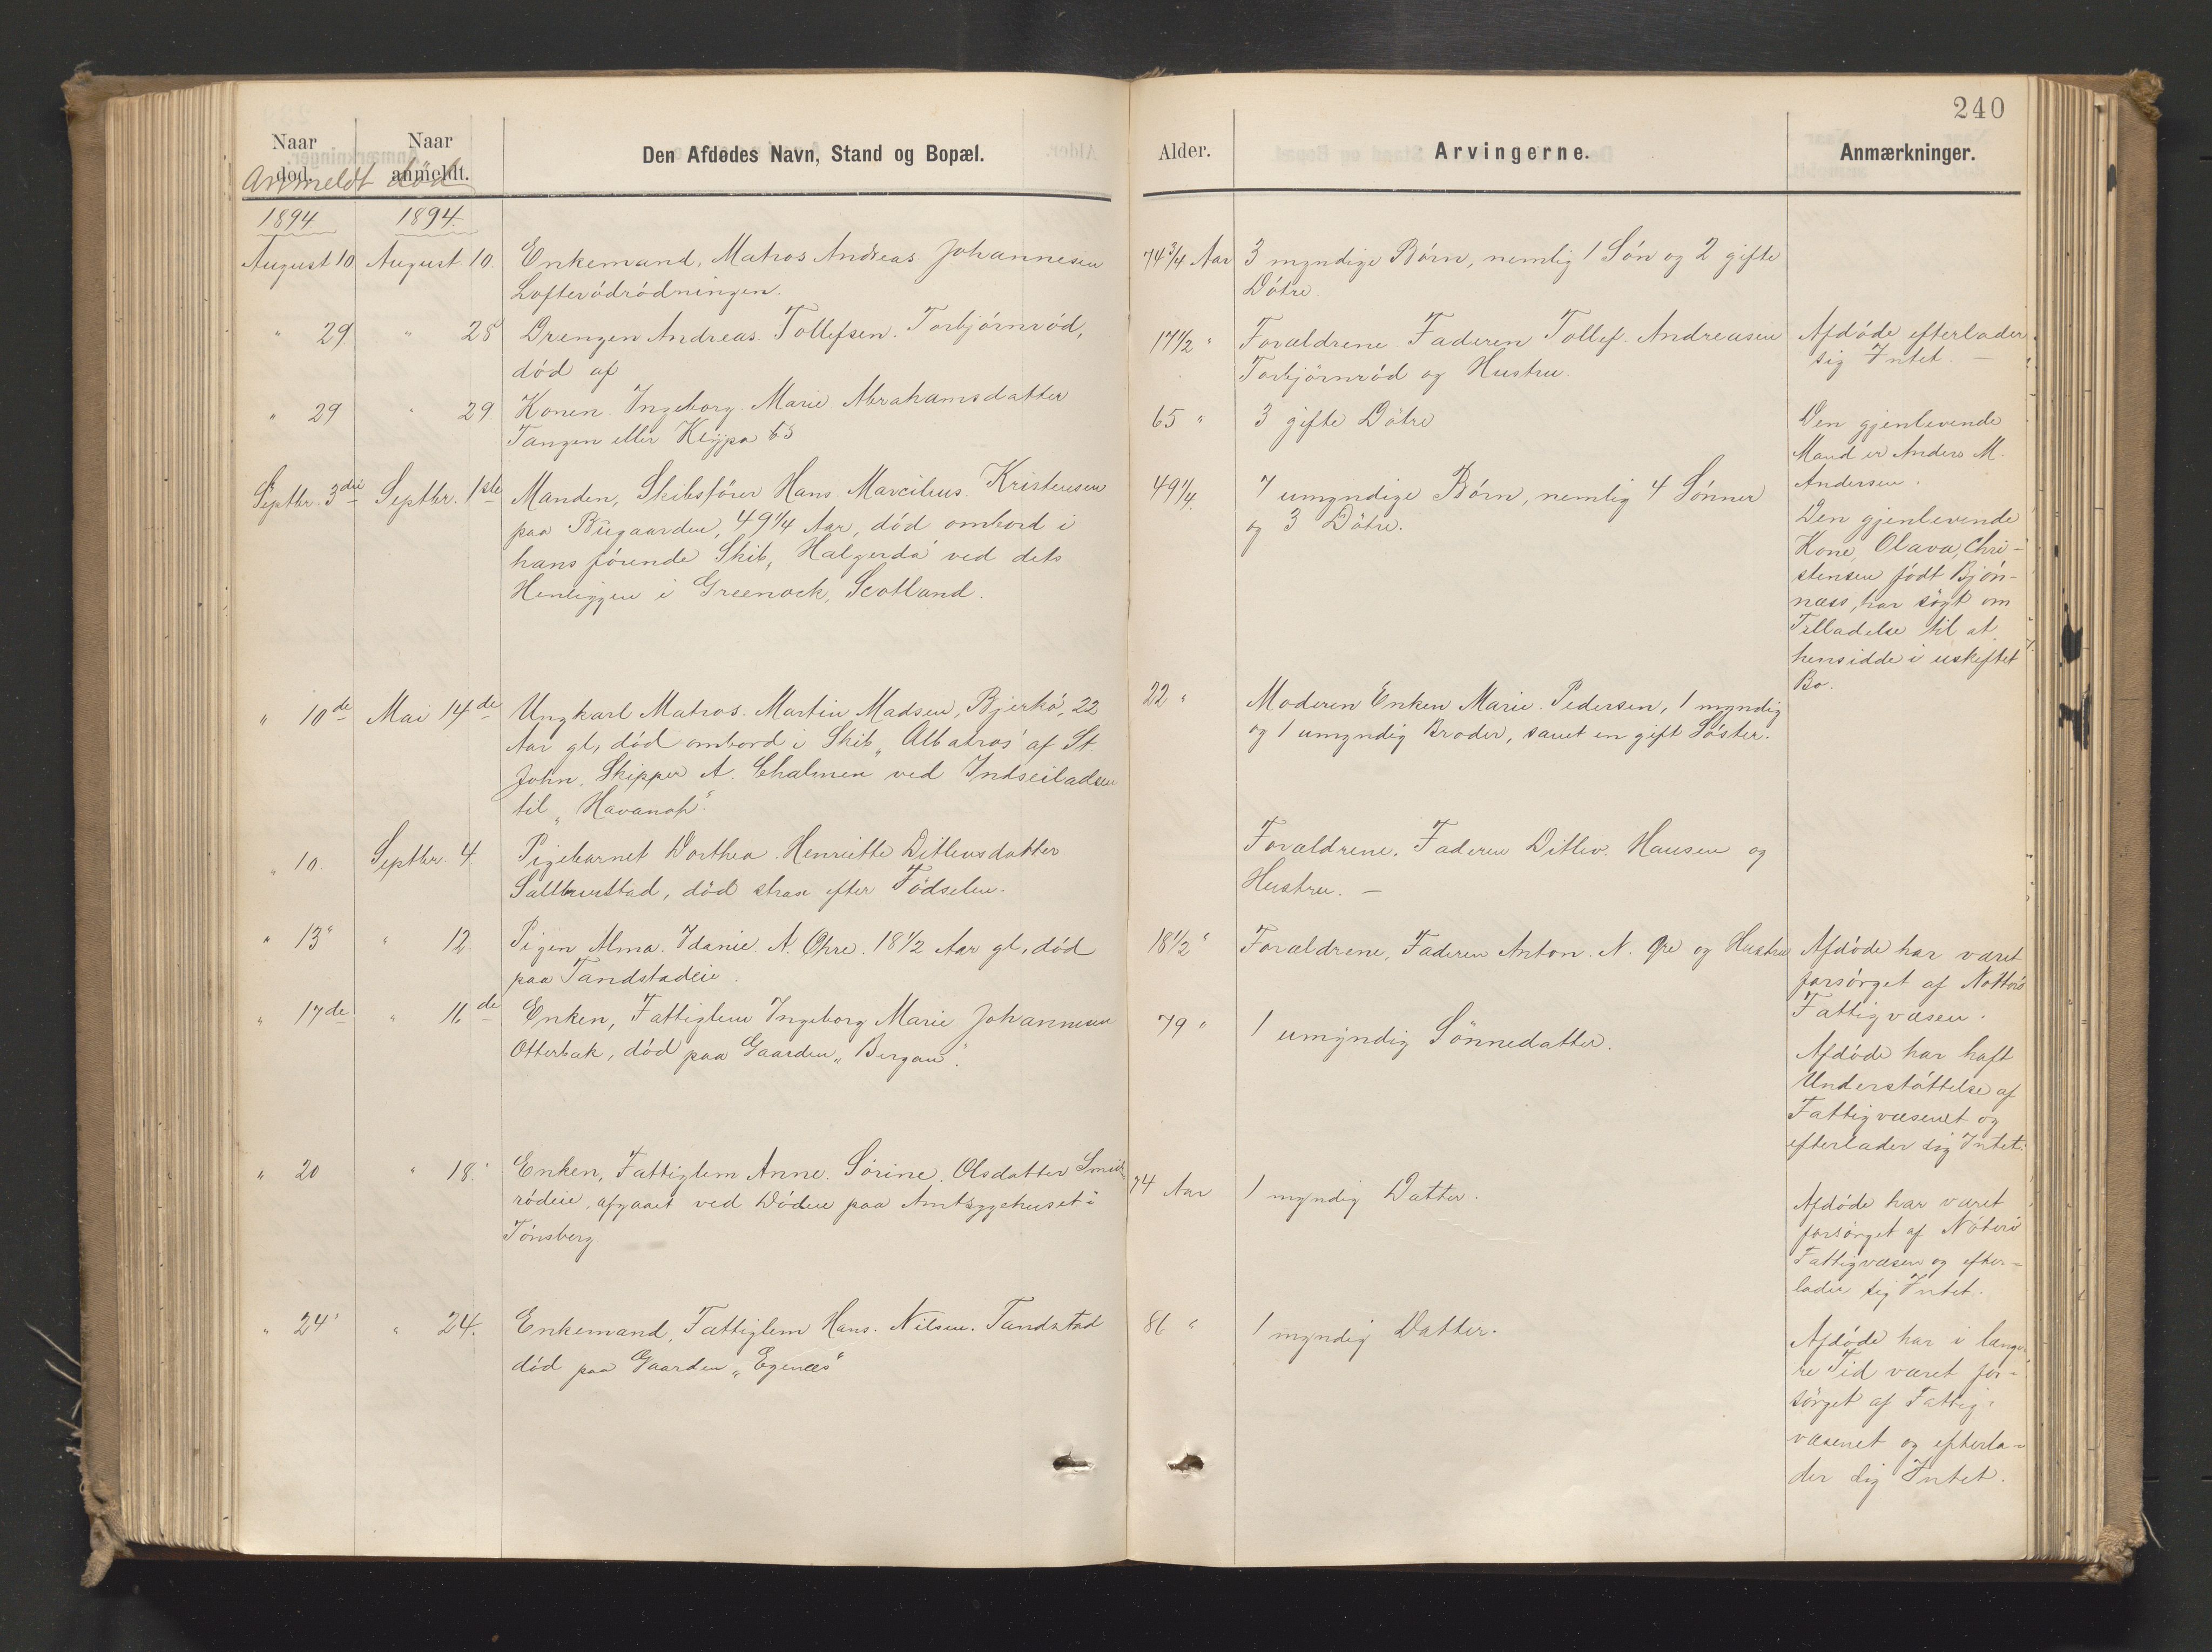 240
Naar død. Naar anmeldt. Den Afdødes Navn, Stand og Bopæl. Alder. Arvingerne. Anmærkninger.
Anmeldt død
1894 1894.
August 10 August 10. Enkemand, Matros Andreas Johannesen
Lofterødrødningen.
74 3/4 Aar 3 myndige Børn, nemlig 1 Søn og 2 gifte
Døtre.
" 29 " 28 Drengen Andreas Tollefsen Torbjørnrød,
død af
17 1/2 " Forældrene Faderen Tollef Andreasen
Torbjørnrød og Hustru.
Afdøde efterlader
sig Intet. —
" 29 " 29 Konen Ingeborg Marie Abrahamsdatter
Tangen eller Kløpa 63
65 " 3 gifte Døtre
Den gjenlevende
Mand er Anders M.
Andersen.
Septbr. 3die Septbr. 1ste Manden, Skibsfører Hans Marcilius Kristensen
paa Bugaarden, 49 1/4 Aar, død ombord i
hans førende Skib, "Halgerda" ved dets
Henliggen i Greenock, Scotland.
49 1/4. 7 umyndige Børn, nemlig 4 Sønner
og 3 Døtre.
Den gjenlevende
Kone, Olava, Chri-
stensen født Bjøn-
næss, har søgt om
Tilladelse til at
hensidde i uskiftet
Bo.
" 10de Mai 14de Ungkarl Matros Martin Madsen, Bjerkø, 22
Aar gl, død ombord i Skib "Albatros" af St.
John, Skipper A. Chalmen ved Indseiladsen
til "Havanah".
22 " Moderen Enken Marie Pedersen, 1 myndig
og 1 umyndig Broder, samt en gift Søster.
" 10. Septbr. 4. Pigebarnet Dorthea Henriette Ditlevsdatter
død strax efter Fødselen.
Forældrene, Faderen Ditlev Hansen og
Hustru. —
" 13" " 12. Pigen Alma Idanie A. Øhre. 18 1/2 Aar gl, død
paa Tandstadeie.
18 1/2 " Forældrene, Faderen Anton N. Øre og Hustru
Afdøde har været
forsørget af Nøtterø
Fattigvæsen.
" 17de " 16de Enken, Fattiglem Ingeborg Marie Johannesen
Otterbæk, død paa Gaarden "Bergan".
79 " 1 umyndig Sønnedatter.
Afdøde har haft
Understøttelse af
Fattigvæsenet og
efterlader sig Intet.
" 20 " 18. Enken, Fattiglem Anne Sørine Olsdatter Smid-
rødeie, afgaaet ved Døden paa Amtsygehuset i
Tønsberg.
74 Aar 1 myndig Datter.
Afdøde har været
forsørget af Nøterø
Fattigvæsen og efter-
lader sig Intet.
" 24 " 24. Enkemand, Fattiglem Hans Nilsen Tandstad
død paa Gaarden "Egenæs"
86 " 1 myndig Datter.
Afdøde har i længe-
re Tid været for-
sørget af Fattig-
væsenet og efterla-
der sig Intet.